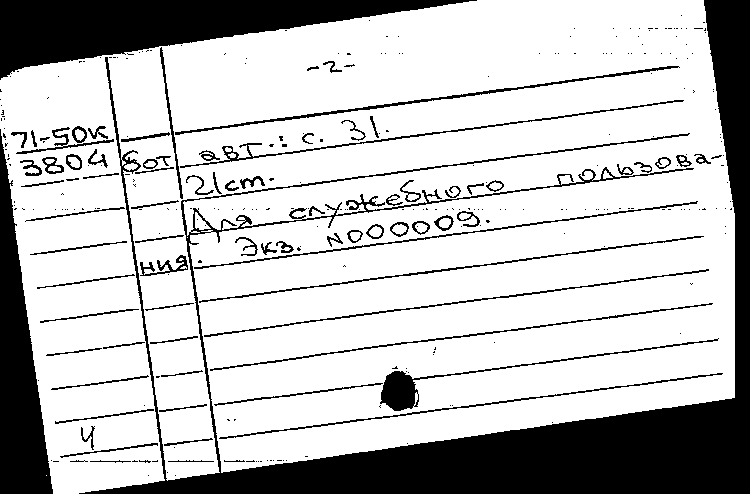 -2-
71-50К
3804 бот авт.: с. 31.
21cm.
Для служебного пользова-
ния. Экз. N000009.
Ч